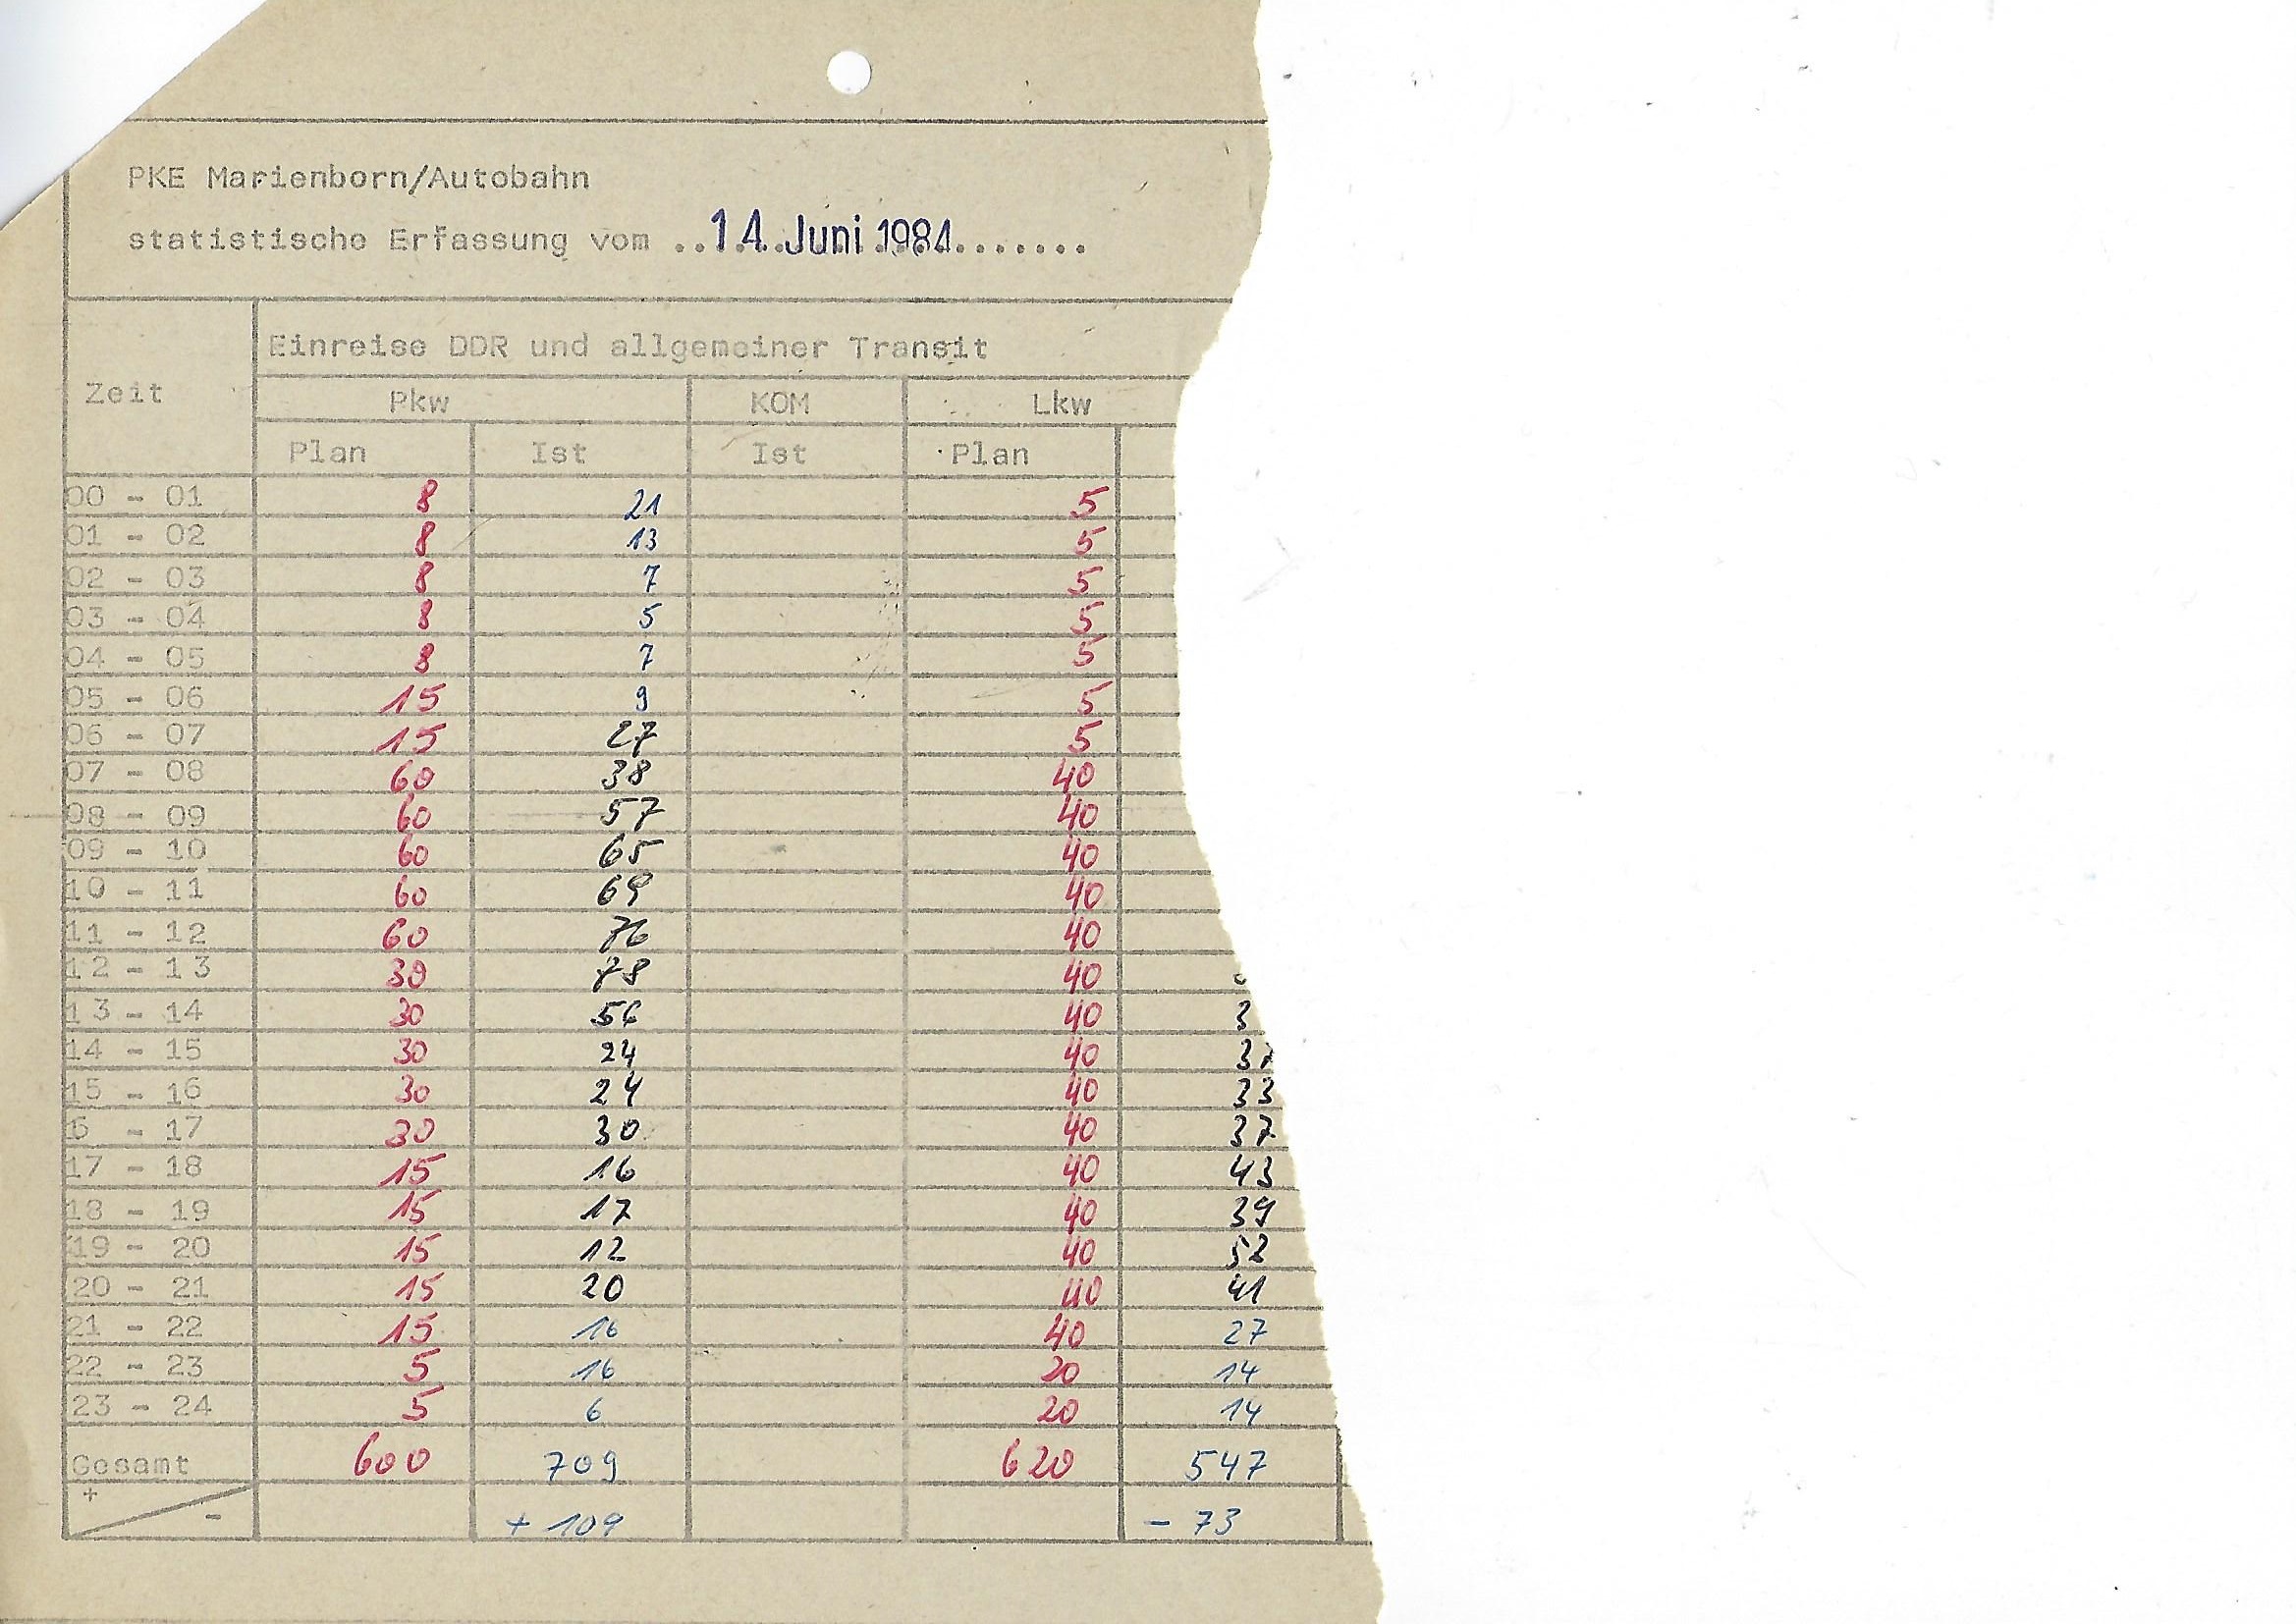 PKE Marienborn/Autobahn
statistische Erfassung vom ..14. Juni 1984.......
Zeit Einreise DDR und allgemeiner Transit
Pkw KOM Lkw
Plan Ist Ist Plan
00 - 01 8 21 5
01 - 02 8 13 5
02 - 03 8 7 5
03 - 04 8 5 5
04 - 05 8 7 5
05 - 06 15 9 5
06 - 07 15 27 5
07 - 08 60 38 40
08 - 09 60 57 40
09 - 10 60 65 40
10 - 11 60 69 40
11 - 12 60 76 40
12 - 13 30 78 40
13 - 14 30 56 40 3
14 - 15 30 24 40 37
15 - 16 30 24 40 33
6 - 17 30 30 40 37
17 - 18 15 16 40 43
18 - 19 15 17 40 39
19 - 20 15 12 40 52
20 - 21 15 20 40 41
21 - 22 15 16 40 27
22 - 23 5 16 20 14
23 - 24 5 6 20 14
Gesamt 600 709 620 547
+ - + 109 - 73